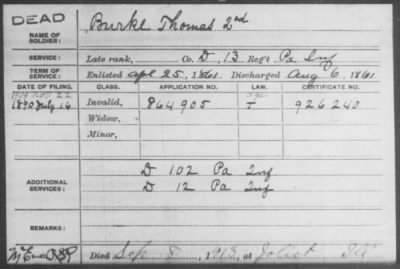 DEAD
NAME OF SOLDIER: Burke Thomas 2nd
SERVICE: Late rank, Co. D, 13 Reg't Pa Inf
TERM OF SERVICE: Enlisted Apl 25, 1861 Discharged Aug 6, 1861
DATE OF FILING. CLASS. APPLICATION NO. LAW. CERTIFICATE NO.
1890 July 16 Invalid, 864905 I 926240
Widow,
Minor,
ADDITIONAL SERVICES: D 102 Pa Inf
D 12 Pa Inf
REMARKS:
Died Sep 5, 1913, at Joliet Ill